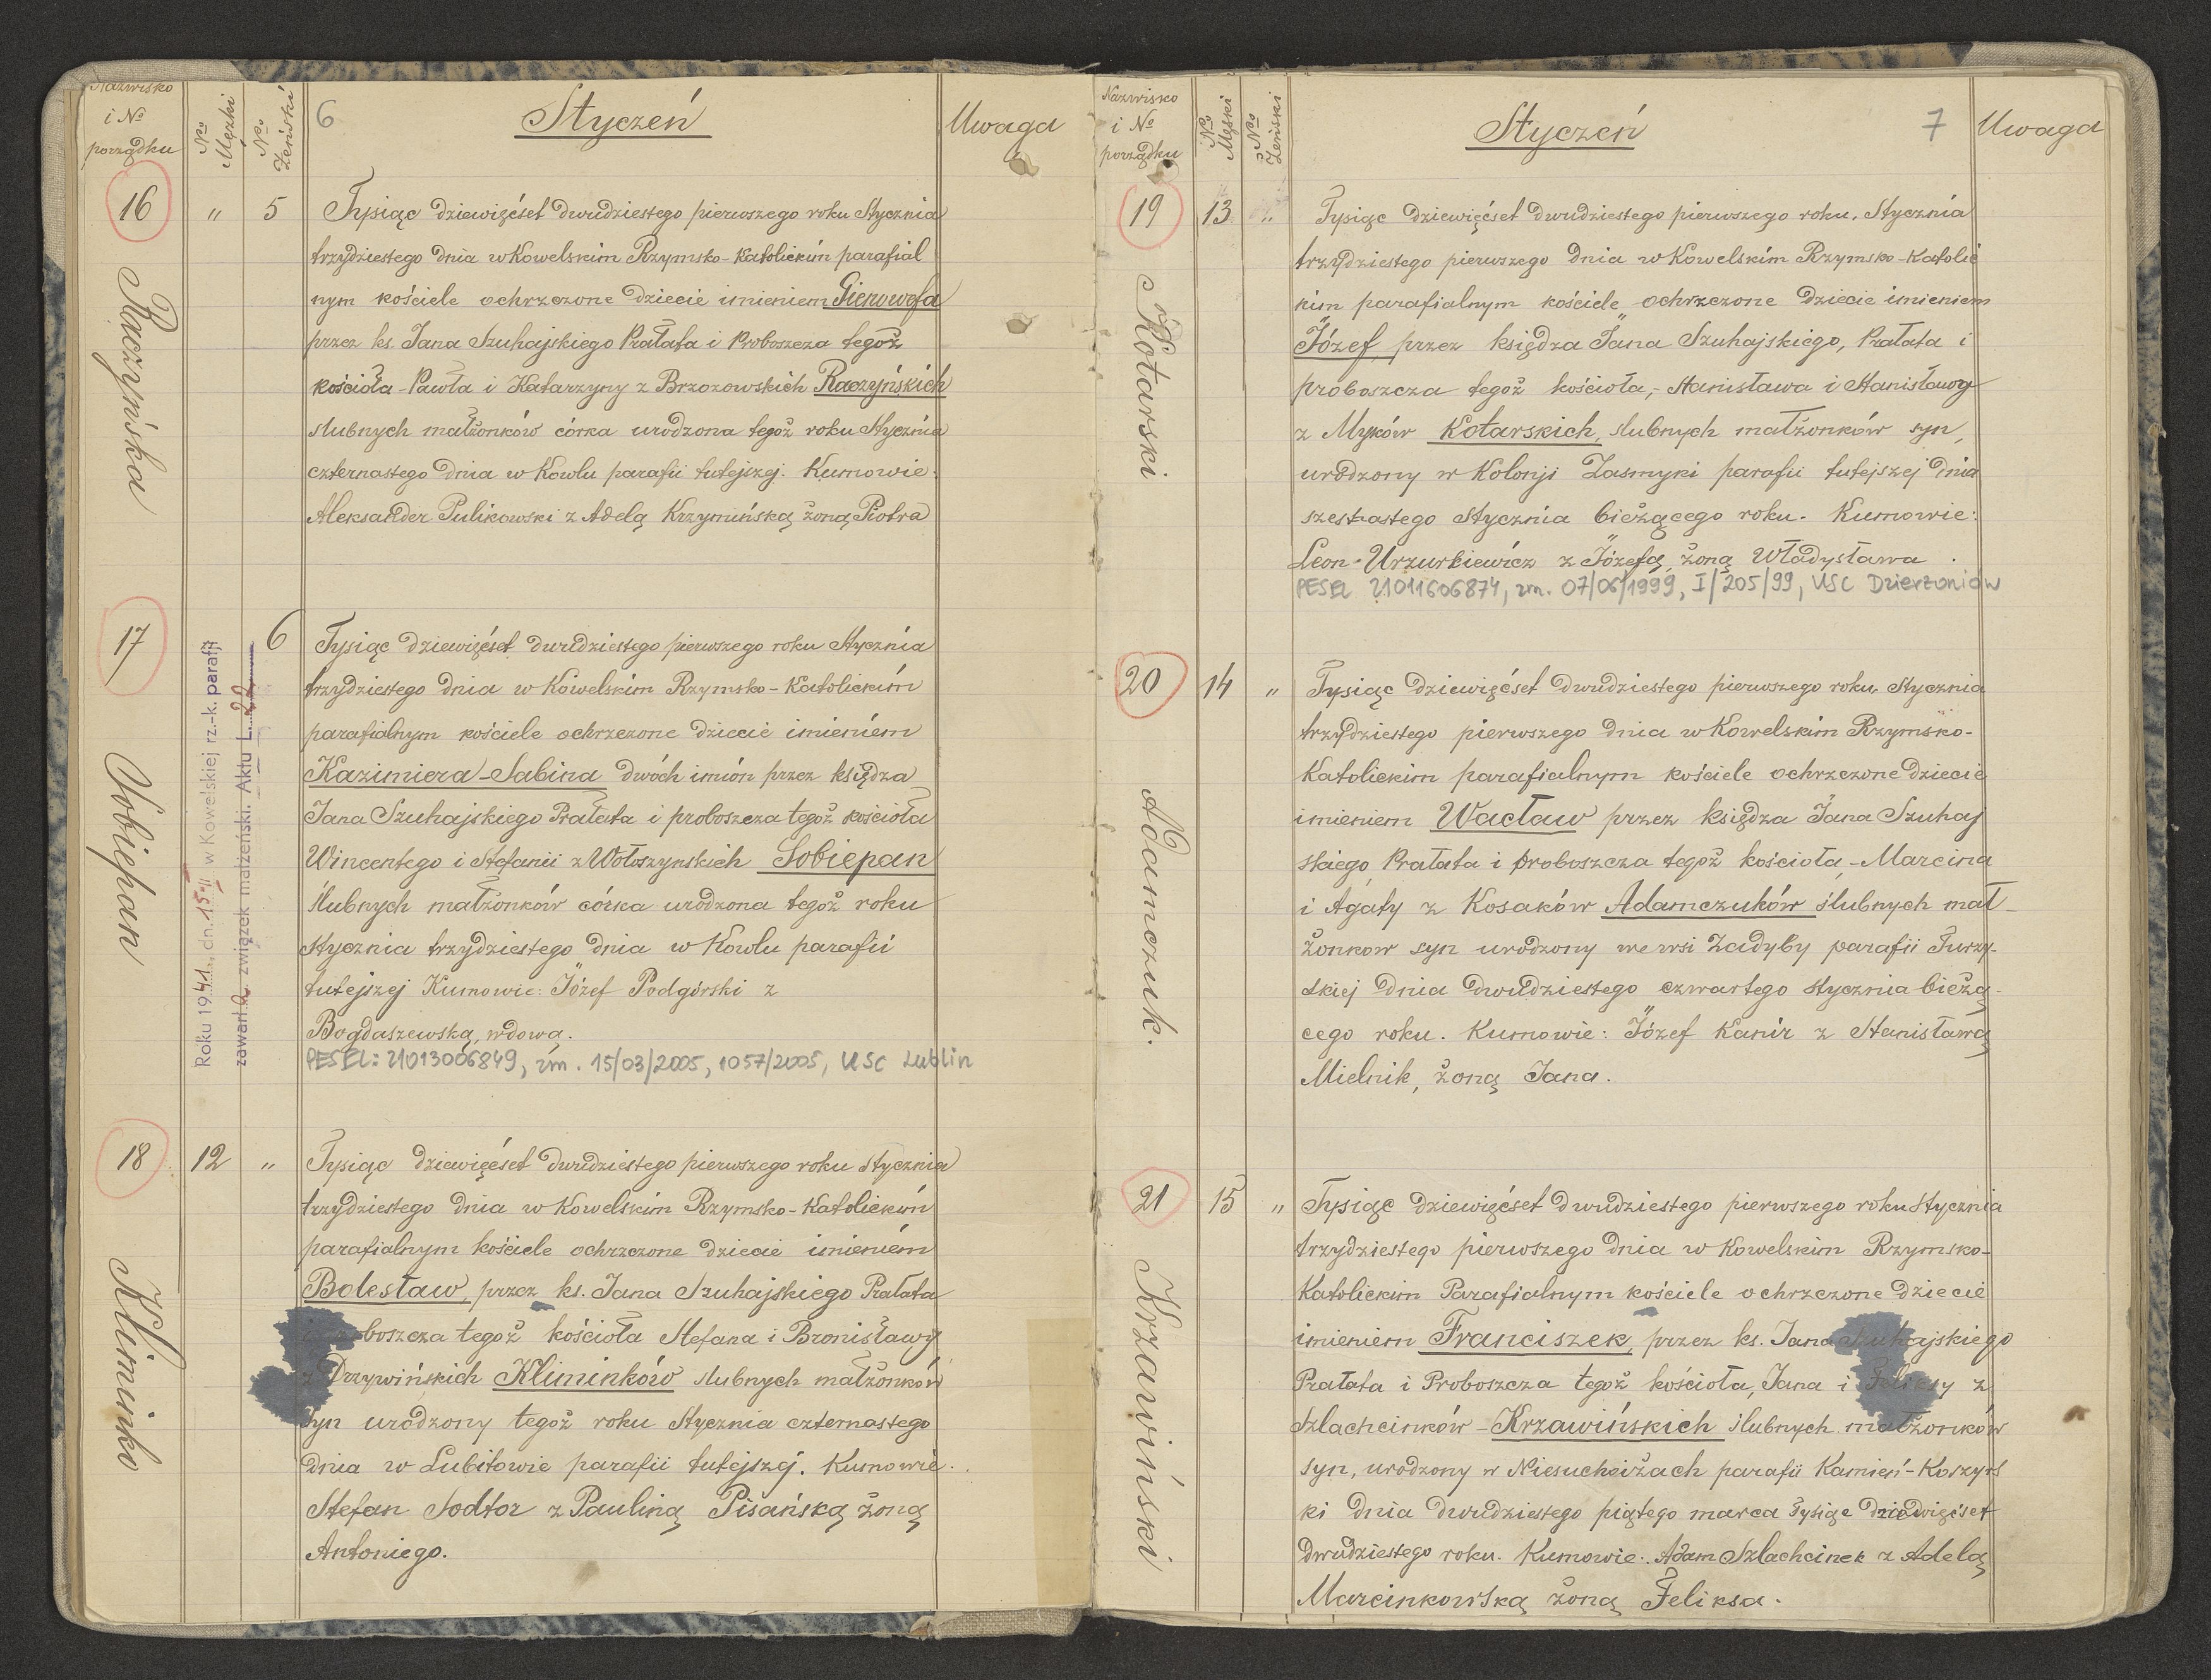 Nazwisko
i No
porządku
No
Męzki
No
Żeński
6
Styczeń
Uwaga
16
"
5
Raczyńska
Tysiąc dziewięćset dwudziestego pierwszego roku Stycznia
trzydziestego dnia w Kowelskim Rzymsko-Katolickim parafial
nym kościele ochrzczone dziecie imieniem Gienowefa
przez ks. Jana Szuhajskiego Prałata i Proboszcza tegoż
kościoła - Pawła i Katarzyny z Brzozowskich Raczyńskich
slubnych małżonków córka urodzona tegoż roku Stycznia
czternastego dnia w Kowlu parafii tutejszej. Kumowie:
Aleksander Pulikowski z Adelą Krzymińską żoną Piotra
17
6
Sobiepan
Roku 1941, dn. 15/II w Kowelskiej rz.-k. parafji
zawarła związek małżeński. Aktu L. 22
Tysiąc dziewięćset dwudziestego pierwszego roku Stycznia
trzydziestego dnia w Kowelskim Rzymsko-Katolickim
parafialnym kościele ochrzczone dziecie imieniem
Kazimiera-Sabina dwóch imion przez księdza
Jana Szuhajskiego Prałata i proboszcza tegoż kościoła
Wincentego i Stefanii z Wołoszynskich Sobiepan
ślubnych małżonków córka urodzona tegoż roku
stycznia trzydziestego dnia w Kowlu parafii
tutejszej Kumowie: Józef Podgórski z
Bogdaszewską, wdową.
PESEL: 21013006849, zm. 15/03/2005, 1057/2005, USC Lublin
18
12
"
Kliminko
Tysiąc dziewięćset dwudziestego pierwszego roku stycznia
trzydziestego dnia w Kowelskim Rzymsko-Katolickim
parafialnym kościele ochrzczone dziecie imieniem
Bolesław, przez ks. Jana Szuhajskiego Prałata
boszcza tegoż kościoła Stefana i Bronisławy
z Drzywińskich Kliminków slubnych małżonków
syn urodzony tegoż roku Stycznia czternastego
dnia w Lubitowie parafii tutejszej. Kumowie:
Stefan Sodtor z Pauliną Pisańską żoną
Antoniego.
Nazwisko
i No
porządku
No
Męski
No
Żeński
Styczeń
7
Uwaga
19
13
"
Kotarski
Tysiąc dziewięćset dwudziestego pierwszego roku, Stycznia
trzydziestego pierwszego dnia w Kowelskim Rzymsko-Katolic
kim parafialnym kościele ochrzczone dziecie imieniem
Józef przez księdza Jana Szuhajskiego, Prałata i
proboszcza tegoż kościoła, - Stanisława i Stanisławy
z Myków Kotarskich, slubnych małżonków syn,
urodzony w Kolonji Zasmyki parafii tutejszej dnia
szestnastego Stycznia bieżącego roku. Kumowie:
Leon Urzurkiewicz z Józefą, żoną Władysława
PESEL 21011606874, zm. 07/06/1999, I/205/99, USC Dzierżoniów
20
14
"
Adamczuk.
Tysiąc dziewięćset dwudziestego pierwszego roku Stycznia
trzydziestego pierwszego dnia w Kowelskim Rzymsko-
Katolickim parafialnym kościele ochrzczone dziecie
imieniem Wacław przez księdza Jana Szuhaj
skiego, Prałata i proboszcza tegoż kościoła, - Marcina
i Agaty z Kosaków Adamczuków ślubnych mał-
żonkow syn urodzony we wsi Zadyby parafii Turzy-
skiej dnia dwudziestego czwartego stycznia bieżą-
cego roku. Kumowie: Józef Kanir z Stanisławą
Mielnik, żoną Jana.
21
15
"
Krzawiński
Tysiąc dziewięćset dwudziestego pierwszego roku Stycznia
trzydziestego pierwszego dnia w Kowelskim Rzymsko-
Katolickim Parafialnym kościele ochrzczone dziecie
imieniem Franciszek, przez ks. Jana Szuhajskiego
Prałata i Proboszcza tegoż kościoła, Jana i Feliksy z
Szlachcinków - Krzawińskich ślubnych małżonków
syn, urodzony w Niesuchoiżach parafii Kamień-Koszyrs
ki dnia dwudziestego piątego marca tysiąc dziewięćset
dwudziestego roku. Kumowie: Adam Szlachcinek z Adelą
Marcinkowską żoną Feliksa.